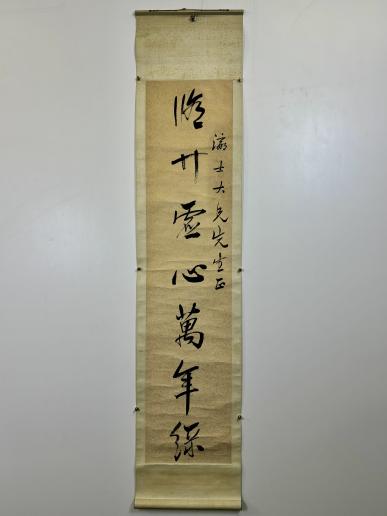 士大兄先生正
脩竹虛心萬年綠